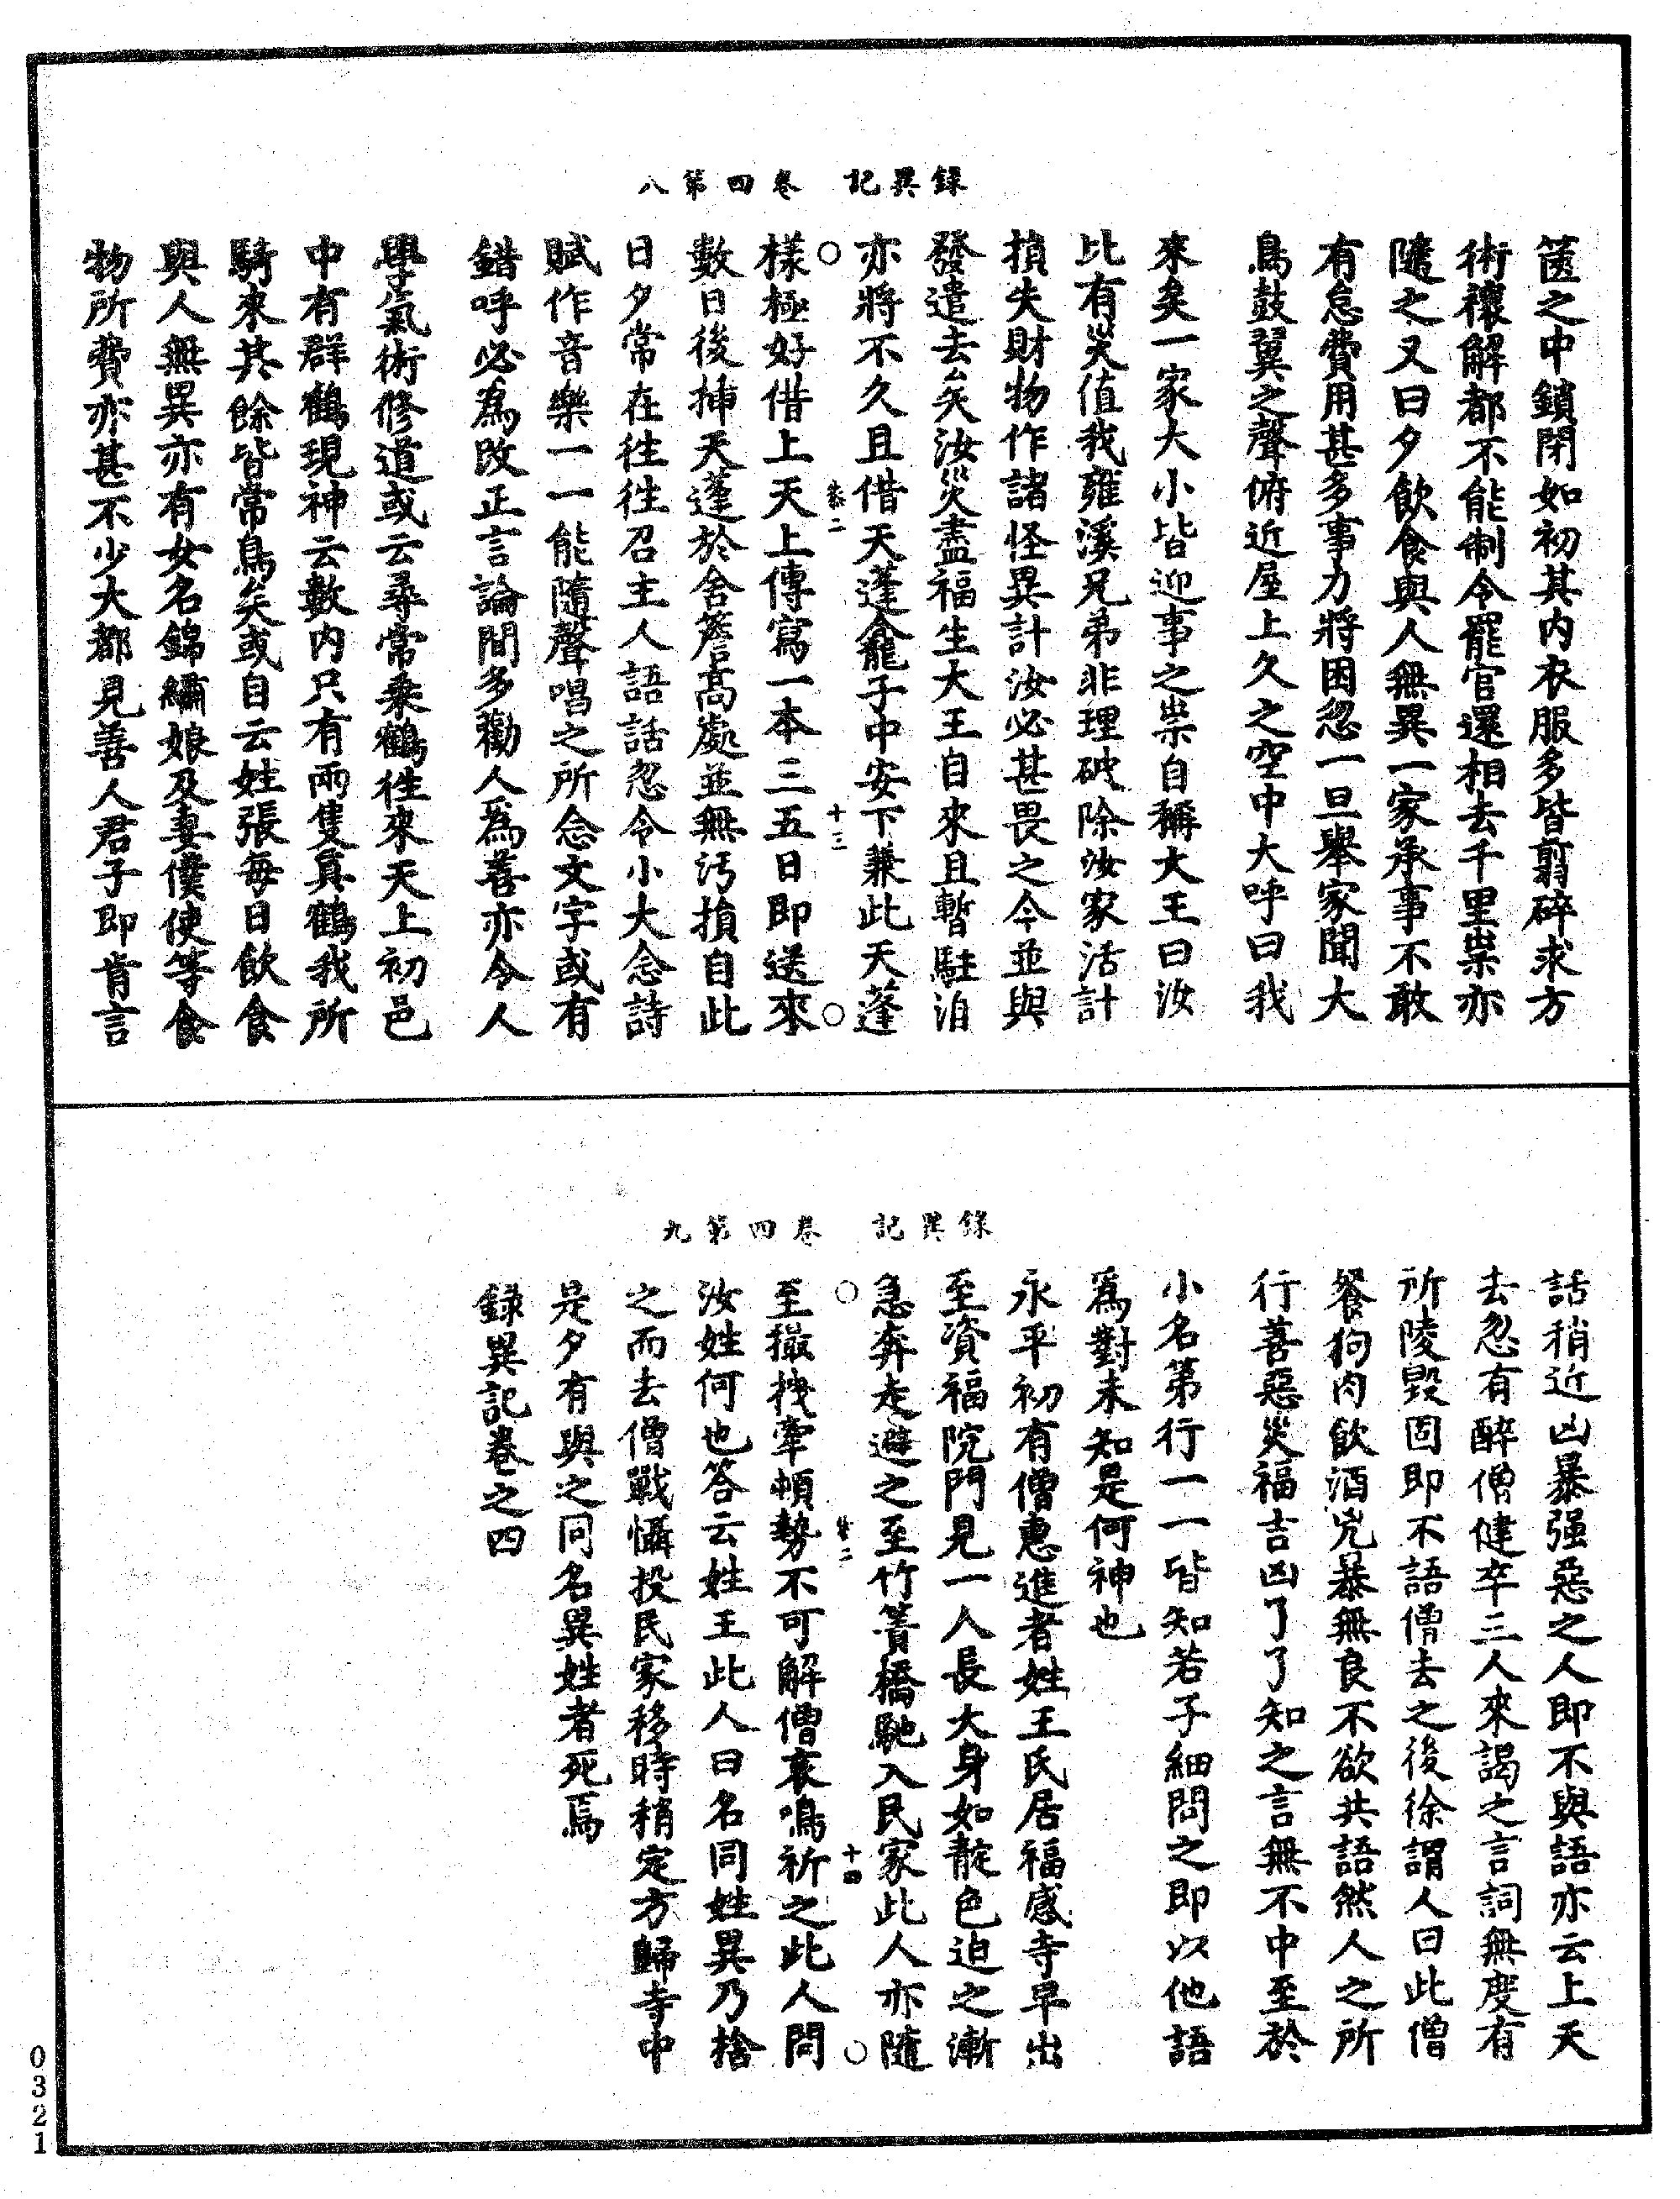 錄異記　卷四第八
篋之中鎖閉如初其内衣服多皆翦碎求方
術禳解都不能制令罷官還相去千里祟亦
隨之又曰夕飲食與人無異一家承事不敢
有怠費用甚多事力將困忽一旦舉家聞大
鳥鼓翼之聲俯近屋上久之空中大呼曰我
來矣一家大小皆迎事之祟自稱大王曰汝
比有災值我雍溪兄弟非理破除汝家活計
損失財物作諸怪異計汝必甚畏之今並與
發遣去矣汝災盡福生大王自來且暫駐泊
亦將不久且借天蓬龕子中安下兼此天蓬
恭二　十三
樣極好借上天上傳寫一本三五日即送來
數日後揷天蓬於舍簷高處並無污損自此
日夕常在往往召主人語話忽令小大念詩
賦作音樂一一能隨聲唱之所念文字或有
錯呼必為改正言論間多勸人爲善亦令人
學氣術修道或云尋常乗鶴往來天上初邑
中有群鶴現神云數内只有兩隻真鶴我所
騎來其餘皆常鳥矣或自云姓張每日飲食
與人無異亦有女名錦繡娘及妻僕使等食
物所費亦甚不少大都見善人君子即肯言
錄異記　卷四第九
話稍近凶暴强惡之人即不與語亦云上天
去忽有醉僧健卒三人來謁之言詞無度有
所陵毀固即不語僧去之後徐謂人曰此僧
餐狗肉飲酒兇暴無良不欲共語然人之所
行善惡災福吉凶了了知之言無不中至於
小名第行一一皆知若子細問之即以他語
爲對未知是何神也
永平初有僧惠進者姓王氏居福感寺早出
至資福院門見一人長大身如靛色迫之漸
急奔走避之至竹簀橋馳入民家此人亦隨
恭二　十四
至撮拽牽頓勢不可解僧哀鳴祈之此人問
汝姓何也答云姓王此人曰名同姓異乃捨
之而去僧戰慴投民家移時稍定方歸寺中
是夕有與之同名異姓者死焉
録異記卷之四
0321